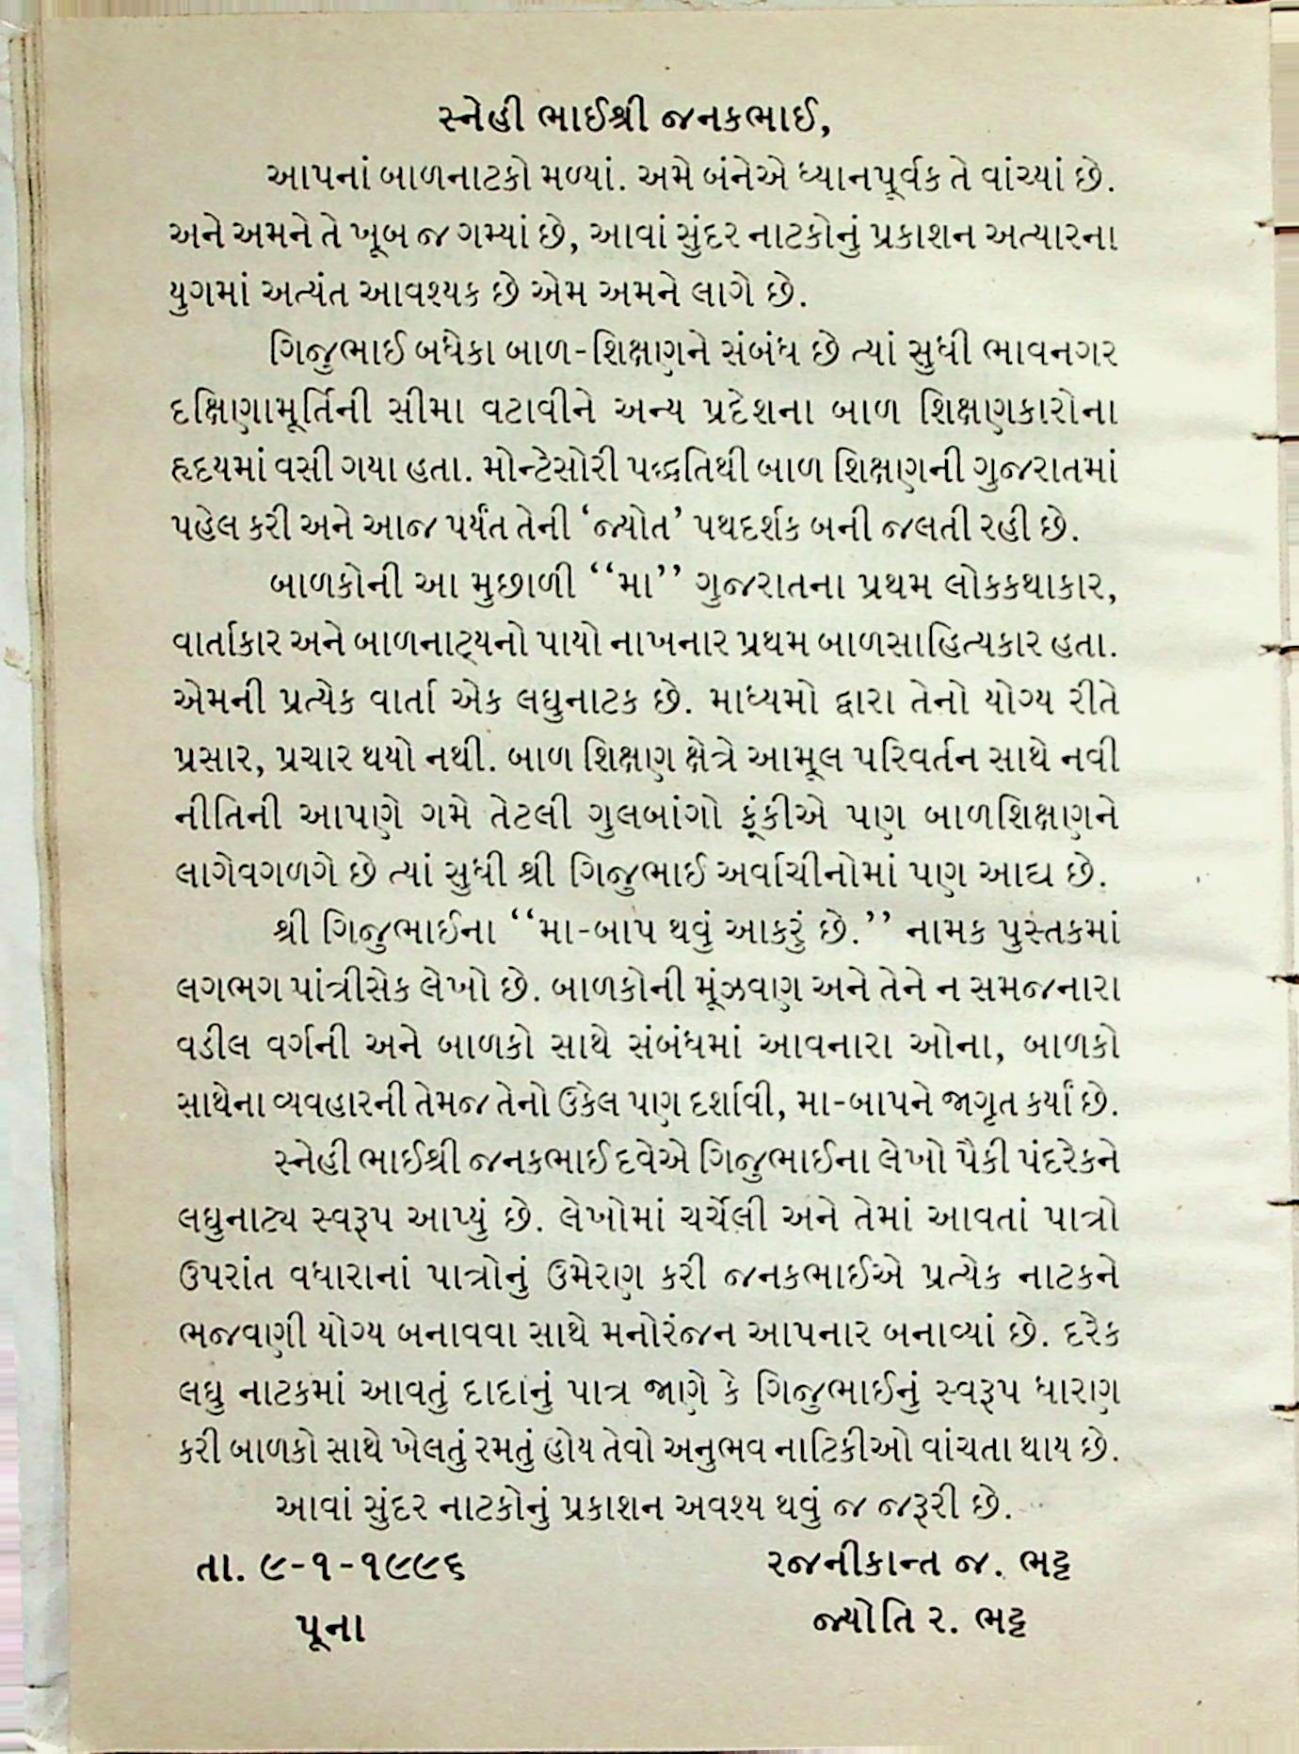 સ્નેહી ભાઈશ્રી જનકભાઈ,
આપનાં બાળનાટકો મળ્યાં. અમે બંનેએ ધ્યાનપૂર્વક તે વાંચ્યાં છે.
અને અમને તે ખૂબ જ ગમ્યાં છે, આવાં સુંદર નાટકોનું પ્રકાશન અત્યારના
યુગમાં અત્યંત આવશ્યક છે એમ અમને લાગે છે.
ગિજુભાઈ બધેકા બાળ-શિક્ષણને સંબંધ છે ત્યાં સુધી ભાવનગર
દક્ષિણામૂર્તિની સીમા વટાવીને અન્ય પ્રદેશના બાળ શિક્ષણકારોના
હૃદયમાં વસી ગયા હતા. મોન્ટેસોરી પદ્ધતિથી બાળ શિક્ષણની ગુજરાતમાં
પહેલ કરી અને આજ પર્યંત તેની ‘જ્યોત’ પથદર્શક બની જલતી રહી છે.
બાળકોની આ મુછાળી ‘‘મા’’ ગુજરાતના પ્રથમ લોકકથાકાર,
વાર્તાકાર અને બાળનાટ્યનો પાયો નાખનાર પ્રથમ બાળસાહિત્યકાર હતા.
એમની પ્રત્યેક વાર્તા એક લઘુનાટક છે. માધ્યમો દ્વારા તેનો યોગ્ય રીતે
પ્રસાર, પ્રચાર થયો નથી. બાળ શિક્ષણ ક્ષેત્રે આમૂલ પરિવર્તન સાથે નવી
નીતિની આપણે ગમે તેટલી ગુલબાંગો ફૂંકીએ પણ બાળશિક્ષણને
લાગેવગળગે છે ત્યાં સુધી શ્રી ગિજુભાઈ અર્વાચીનોમાં પણ આદ્ય છે.
શ્રી ગિજુભાઈના ‘‘મા-બાપ થવું આકરું છે.’’ નામક પુસ્તકમાં
લગભગ પાંત્રીસેક લેખો છે. બાળકોની મૂંઝવણ અને તેને ન સમજનારા
વડીલ વર્ગની અને બાળકો સાથે સંબંધમાં આવનારા ઓના, બાળકો
સાથેના વ્યવહારની તેમજ તેનો ઉકેલ પણ દર્શાવી, મા-બાપને જાગૃત કર્યાં છે.
સ્નેહી ભાઈશ્રી જનકભાઈ દવેએ ગિજુભાઈના લેખો પૈકી પંદરેકને
લઘુનાટ્ય સ્વરૂપ આપ્યું છે. લેખોમાં ચર્ચેલી અને તેમાં આવતાં પાત્રો
ઉપરાંત વધારાનાં પાત્રોનું ઉમેરણ કરી જનકભાઈએ પ્રત્યેક નાટકને
ભજવણી યોગ્ય બનાવવા સાથે મનોરંજન આપનાર બનાવ્યાં છે. દરેક
લઘુ નાટકમાં આવતું દાદાનું પાત્ર જાણે કે ગિજુભાઈનું સ્વરૂપ ધારણ
કરી બાળકો સાથે ખેલતું રમતું હોય તેવો અનુભવ નાટિકીઓ વાંચતા થાય છે.
આવાં સુંદર નાટકોનું પ્રકાશન અવશ્ય થવું જ જરૂરી છે.
તા. ૯-૧-૧૯૯૬ રજનીકાન્ત જ. ભટ્ટ
પૂના જ્યોતિ ર. ભટ્ટ